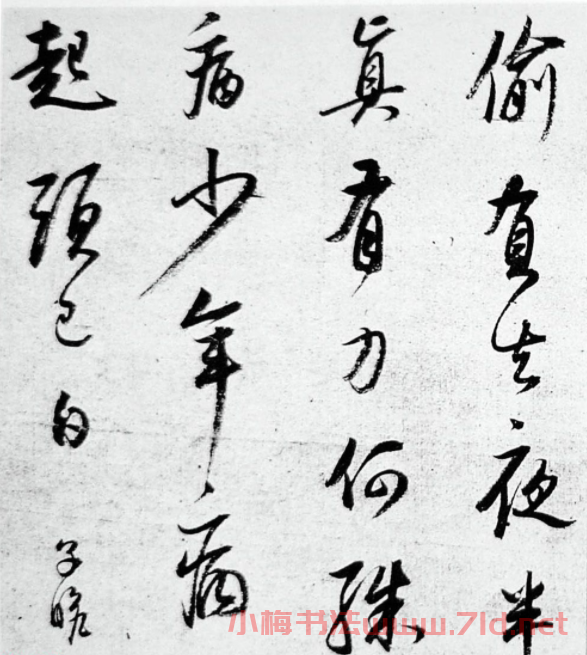 偷負去夜半
真有力何殊
病少年病
起頭已白
子瞻
小梅书法www.7ld.net